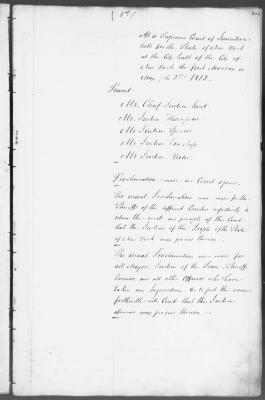 (1st)
At a Supreme Court of Judicature
held for the State of New York
at the City Hall of the City of
New York the first Monday in
May (the 3rd) 1813.
Present
Mr. Chief Justice Kent
Mr. Justice Thompson
Mr. Justice Spencer
Mr. Justice Van Ness
Mr. Justice Yates
Proclamation made and Court opened.
The usual Proclamation was made for the
Sheriffs of the different Counties respectively to
return the writs and precepts of this Court
that the Justices of the People of the State
of New York may proceed thereon.
The usual Proclamation was made for
all Mayors, Justices of the Peace, Sheriffs
Coroners and all other Officers who have
taken any Inquisitions & to put the same
forthwith into Court that the Justices
may proceed thereon.